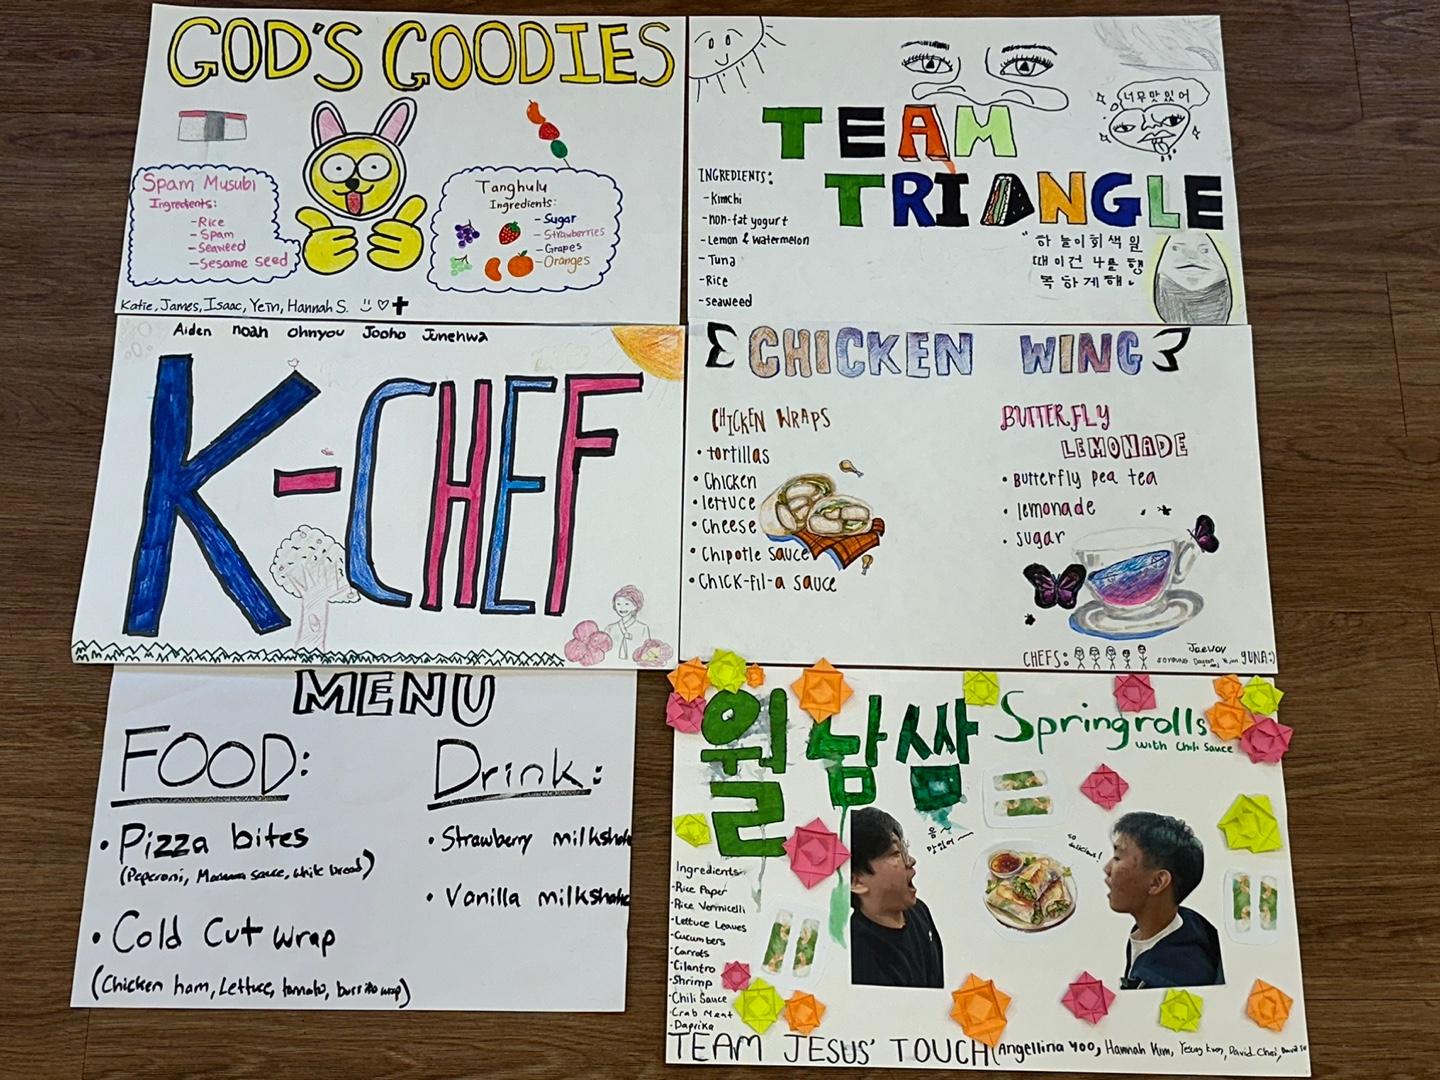 GOD'S GOODIES
Spam Musubi
Ingredients:
- Rice
- Spam
- Seaweed
- Sesame seed
Tanghulu
Ingredients:
- Sugar
- Strawberries
- Grapes
- Oranges
Katie, James, Isaac, Yein, Hannah S.
TEAM
TRIANGLE
너무 맛있어
INGREDIENTS:
- Kimchi
- non-fat yogurt
- Lemon & watermelon
- Tuna
- Rice
- seaweed
"하늘이 회색일
때 이건 나를 행
복하게해"
Aiden noah ohnyou Jooho Junehwa
K-CHEF
CHICKEN WING
CHICKEN WRAPS
• tortillas
• Chicken
• lettuce
• Cheese
• Chipotle sauce
• Chick-fil-a sauce
BUTTERFLY
LEMONADE
• Butterfly pea tea
• lemonade
• sugar
CHEFS:
Jaewoy
YUNA:)
MENU
FOOD:
• Pizza bites
(Peperoni, Marinara sauce, white bread)
• Cold Cut wrap
(Chicken ham, Lettuce, tomato, burrito wrap)
Drink:
• Strawberry milkshake
• Vanilla milkshake
월남쌈 Springrolls
with Chili Sauce
음~
맛있어~
so
delicious!
Ingredients
- Rice Paper
- Rice Vermicelli
- Lettuce Leaves
- Cucumbers
- Carrots
- Cilantro
- Shrimp
- Chili Sauce
- Crab Meat
- Paprika
TEAM JESUS' TOUCH (Angellina Yoo, Hannah Kim, Yesung Kwon, David Choi,